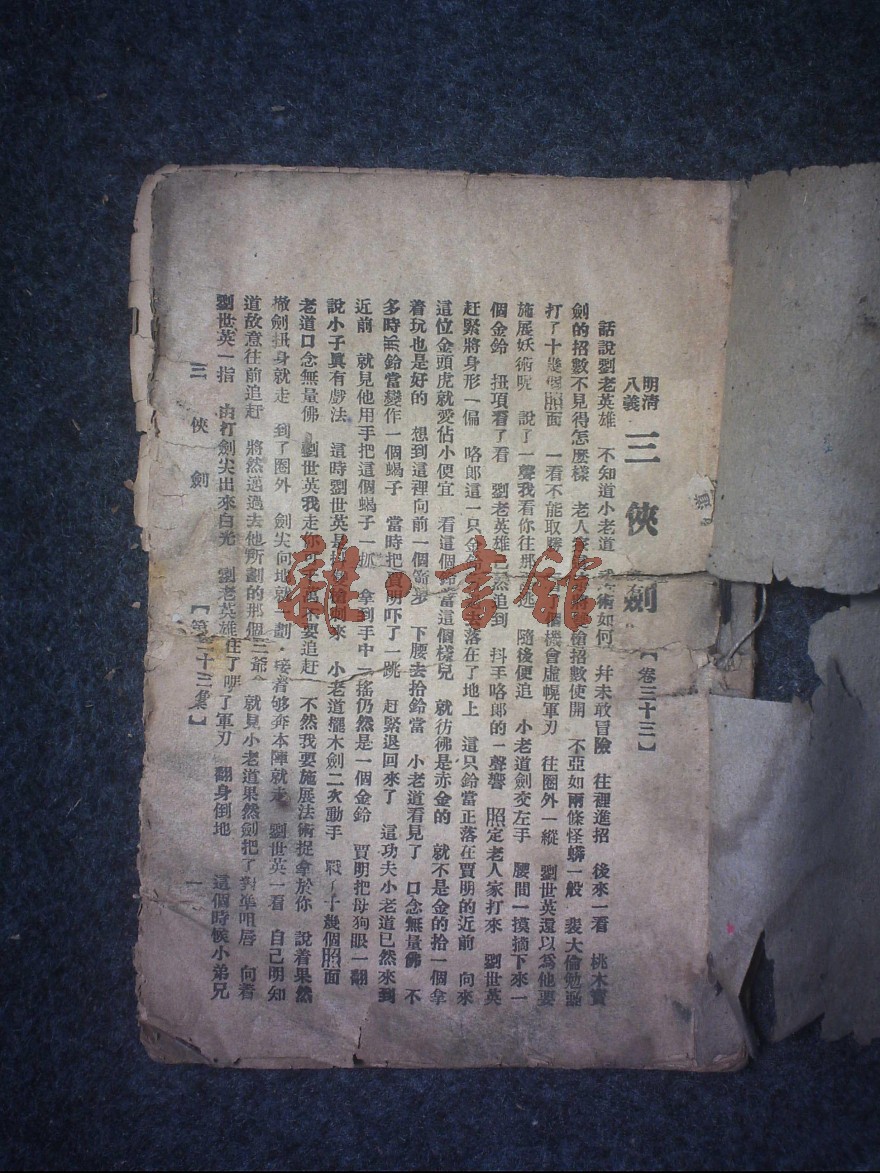 明清
八義
三俠劍
【卷三十三】
話說劉老英雄 不知道小老道 術如何 幷未敢冒險 往裡進招 後來一看 桃木寶
劍的招數不見得怎麽樣 老人家 槍招數使開 不亞如兩條怪蟒一般 裴大倫勉強
打了十幾個照面 一看不能取勝 個機會虛幌軍刃 往圈外一縱 劉世英還以爲他要
施展妖術呢 說了一聲我看你往那 逃 隨後便追 小老道劍交左手 腰間一摸摘下來一
個金鈴 扭項看了看 劉老英雄已然追到 抖手咯郎的一聲響 照定老人家打來 劉世英
赶緊將身形一偏 咯郎這一只金 落在了地上 這只鈴當正落在賈明的近前 向來
這位金頭虎就愛佔小便宜 看這個鈴當這個樣兒 就彷彿是赤金的 就不是金的拾一個拿
着玩也是好的 想到這裡向前一個箭步 下腰去拾鈴當 小老道看見了 口念無量佛 不
多時 鈴當變作一個蝎子 當時把賈明吓了一跳 赶緊退回來了 這功夫小老道已然來到
近前 就見他用手把這個蝎子一抓 拿到手中一搖仍然是一個金鈴 賈明把母狗眼一翻
說小子眞有戲法 這時劉世英 來 小老道擺木劍二次動手 戰了十幾個照面
老道口念無量佛 劉世英我走你可 不要追赶 不然我要施展法術捉拿於你 說着果然
撤劍扭身就走 到了圈外 劍尖向地就一劃 接着够奔本陣就走 劉世英一看 自己明知
道故意往前追赶 將然邁過去他所劃的那個 三爺 就見小老道果然劍把了對準咀唇 向着
劉世英一指 由打劍尖出來白光 劉老英雄 住了 了軍刃 翻身倒地 這個時候小弟兄
三俠劍
【第三十三集】
一
道
雜·書館